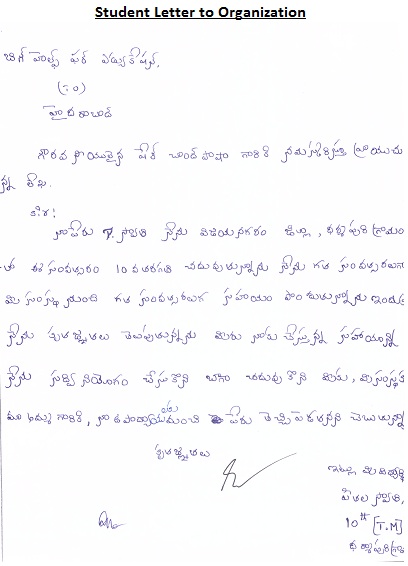 Student Letter to Organization
బిగ్ హెల్ప్ ఫర్ ఎడ్యుకేషన్,
హైదరాబాద్
గౌరవనీయులైన షేక్ చాంద్ పాషా గారికి నమస్కరిస్తూ వ్రాయుచు
న్న లేఖ.
నా పేరు P. స్వాతి నేను విజయనగరం జిల్లా, ధర్మపురి గ్రామం
ఈ సంవత్సరం 10 వ తరగతి చదువుతున్నాను నేను గత సంవత్సరాలుగా
మీ సంస్థ నుంచి గత సంవత్సరాలుగ సహాయం పొందుతున్నాను ఇందుకు
నేను కృతజ్ఞతలు తెలుపుతున్నాను మీరు నాకు చేస్తున్న సహాయాన్ని
నేను సద్వినియోగం చేసుకొని బాగా చదువుకొని మీకు, మీ సంస్థకి
మా అమ్మ గారికి, నా ఉపాధ్యాయులకు మంచి పేరు తెచ్చి పెడతానని చెబుతున్నా
కృతజ్ఞతలు
ఇట్లు మీ విద్యార్థి
స్వాతి,
10th [T.M]
ధర్మాపురి (గ్రా